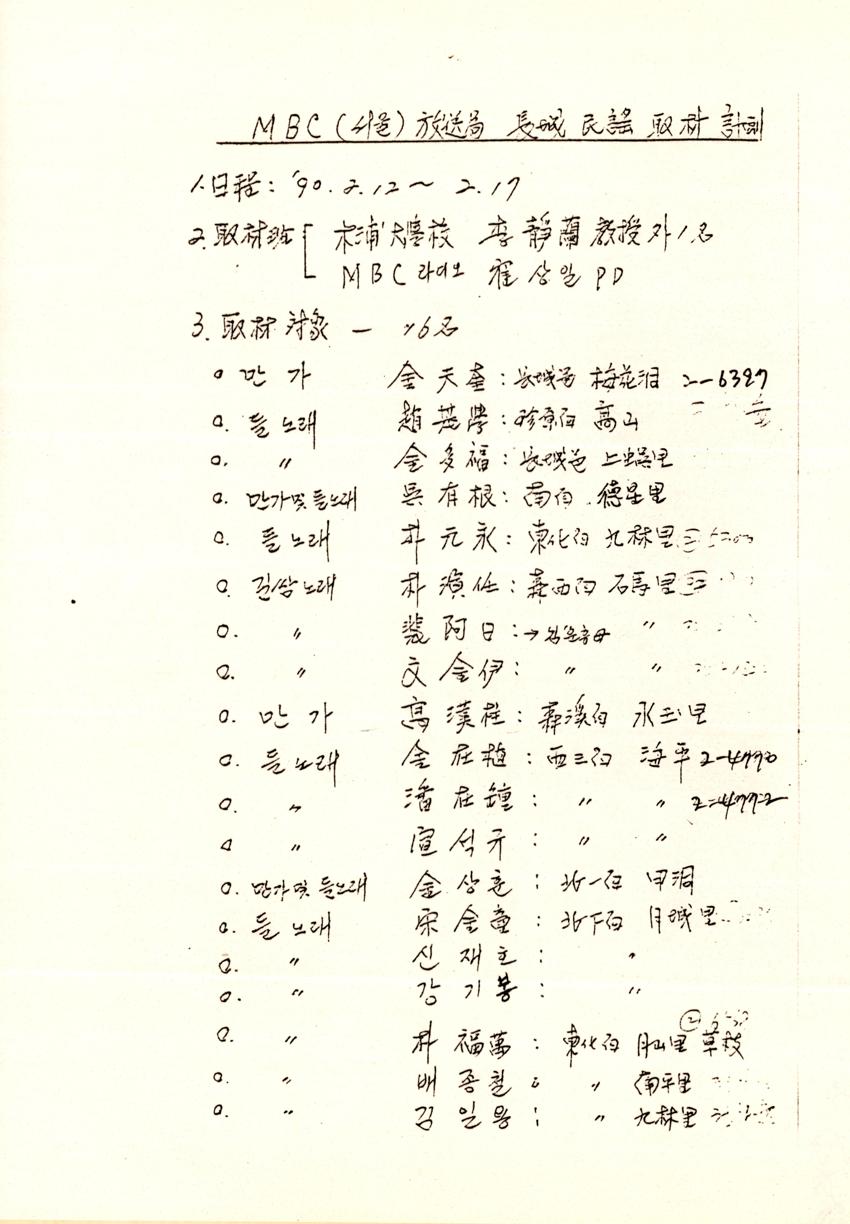 MBC (서울) 放送局 長城 民謠 取材 計劃
1. 日程 : '90. 2. 12 ~ 2. 17
2. 取材班 木浦大學校 李靜蘭 敎授 外 1名
MBC 라디오 崔상일 PD
3. 取材 對象 - 16名
o 만가 金天奎 : 長城邑 梅花洞 2-6327
o. 들노래 趙 : 珍原面 高山
o. 〃 金多福 : 長城邑 上蜈里
o. 만가 및 들노래 吳有根 : 南面 德星里
o. 들노래 朴元永 : 東化面 九林里
o. 길쌈노래 朴 任 : 森西面 石馬里
o. 〃 裵阿日 : → 〃
o. 〃 文金伊 : 〃 〃
o. 만가 高漢柱 : 森溪面
o. 들노래 金在植 : 西三面 海平 2-4770
o. 〃 潘在鍾 : 〃 〃 2-4772
o 〃 宣석규 : 〃 〃
o. 만가 및 들노래 金상 : 北一面
o. 들노래 宋金童 : 北下面 月城里
o. 〃 신재 : 〃
o. 〃 강기봉 : 〃
o. 〃 朴福萬 : 東化面 月山里 草枝
o. 〃 배종철 : 〃 南平里
o. 〃 김일용 : 〃 九林里